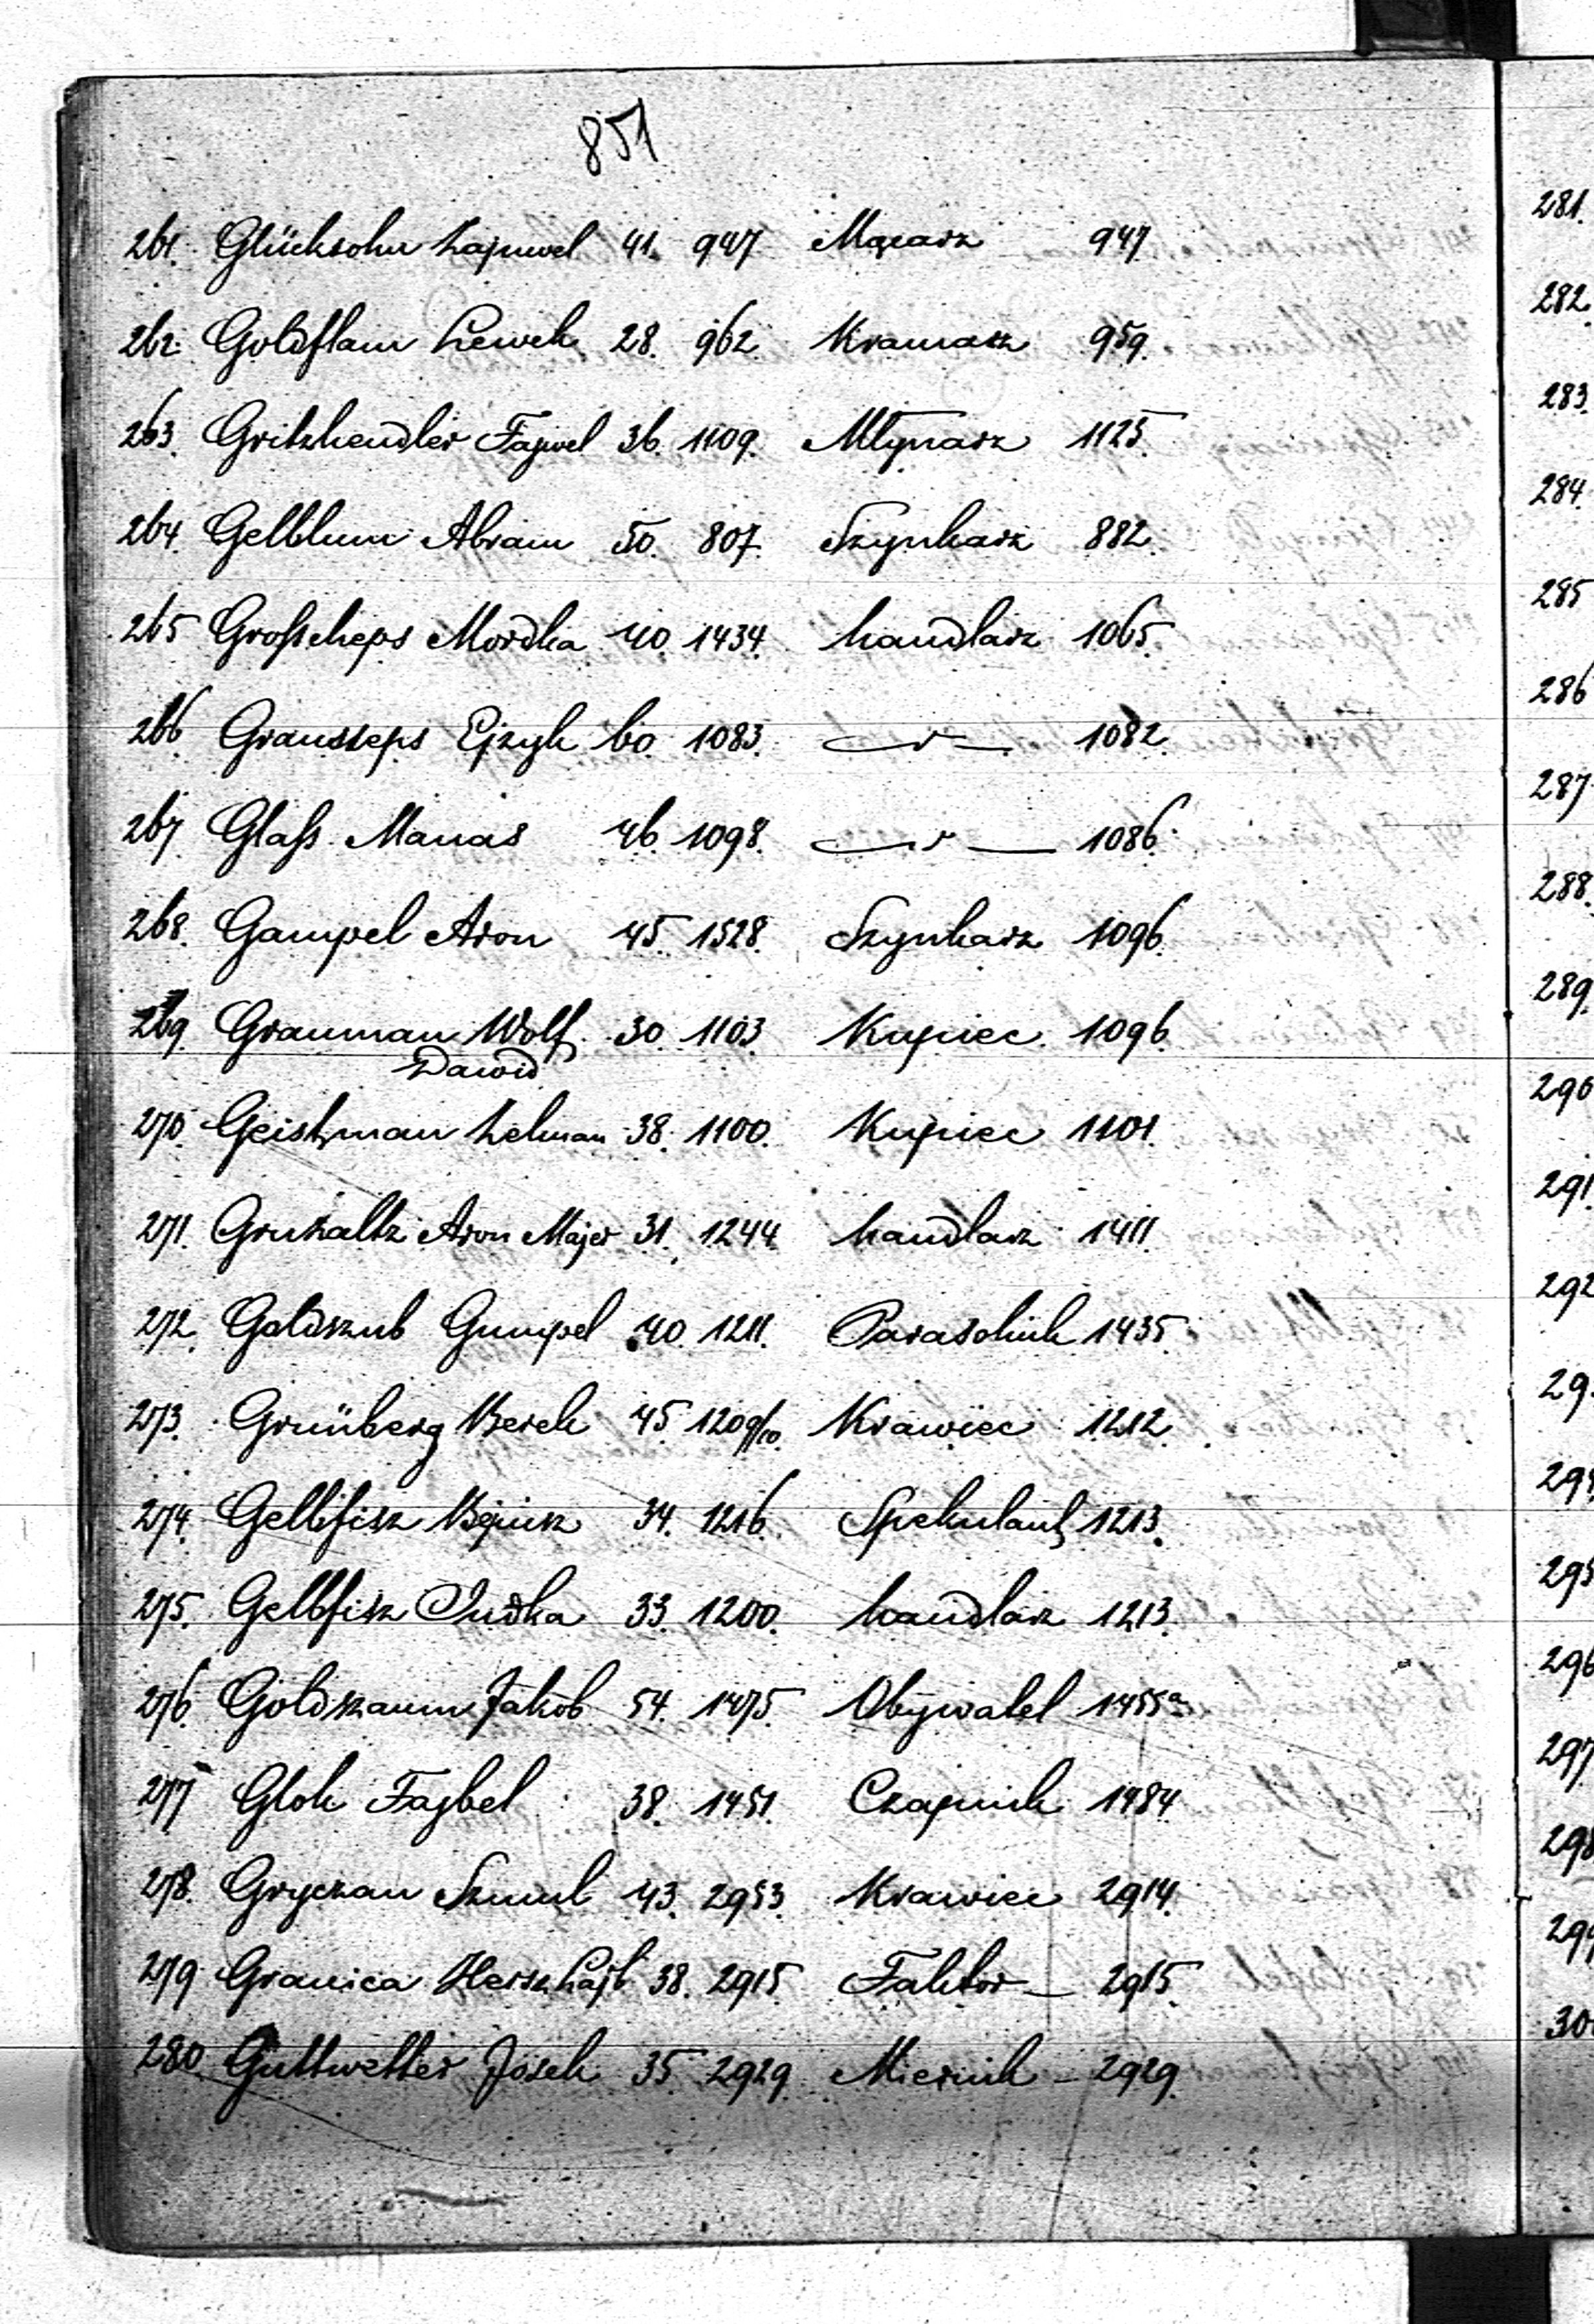 851
261. Glücksohn Lajwel 41. 947 Mącarz 947
262. Goldflam Lewek 28. 962. Kramarz 959.
263. Gritzhendler Fajwel 36. 1109. Młynarz 1125.
264. Gelblum Abram 50. 807. Szynkarz 882.
265 Großcheps Mordka 40. 1434. handlarz 1065.
266. Grausseps Ejzyk 60 1083. —"— 1082.
267. Glaß Manas 46. 1098. —"— 1086.
268. Gampel Aron 45. 1528. Szynkarz 1096.
269. Grauman Wolf 30. 1103. Kupiec. 1096.
Dawid
270. Geistman Lelman 38. 1100. Kupiec 1101.
271. Gruxaltz Aron Majer 31. 1244. handlarz 1411.
272. Goldszub Gumpel 40. 1211. Parasolnik 1435.
273. Grünberg Berek 45 1209/10. Krawiec 1212.
274. Gelbfisz Bejnisz 34. 1216. Spekulant 1213.
275. Gelbfisz Judka 33. 1200. handlarz 1213.
276. Goldszaum Jakob 54. 1475. Obywatel 1455a
277 Glok Fajbel 38. 1451. Czapnik 1484.
278. Gryczan Szmul 43. 2953. Krawiec 2914.
279 Granica Hersz Lajb 38. 2915 Faktor — 2915.
280 Guttwetter Josek 35 2929. Miernik — 2929.
281.
282.
283.
284.
285
286
287
288.
289.
290
291
292
29
29
295
296
297
298
299
30